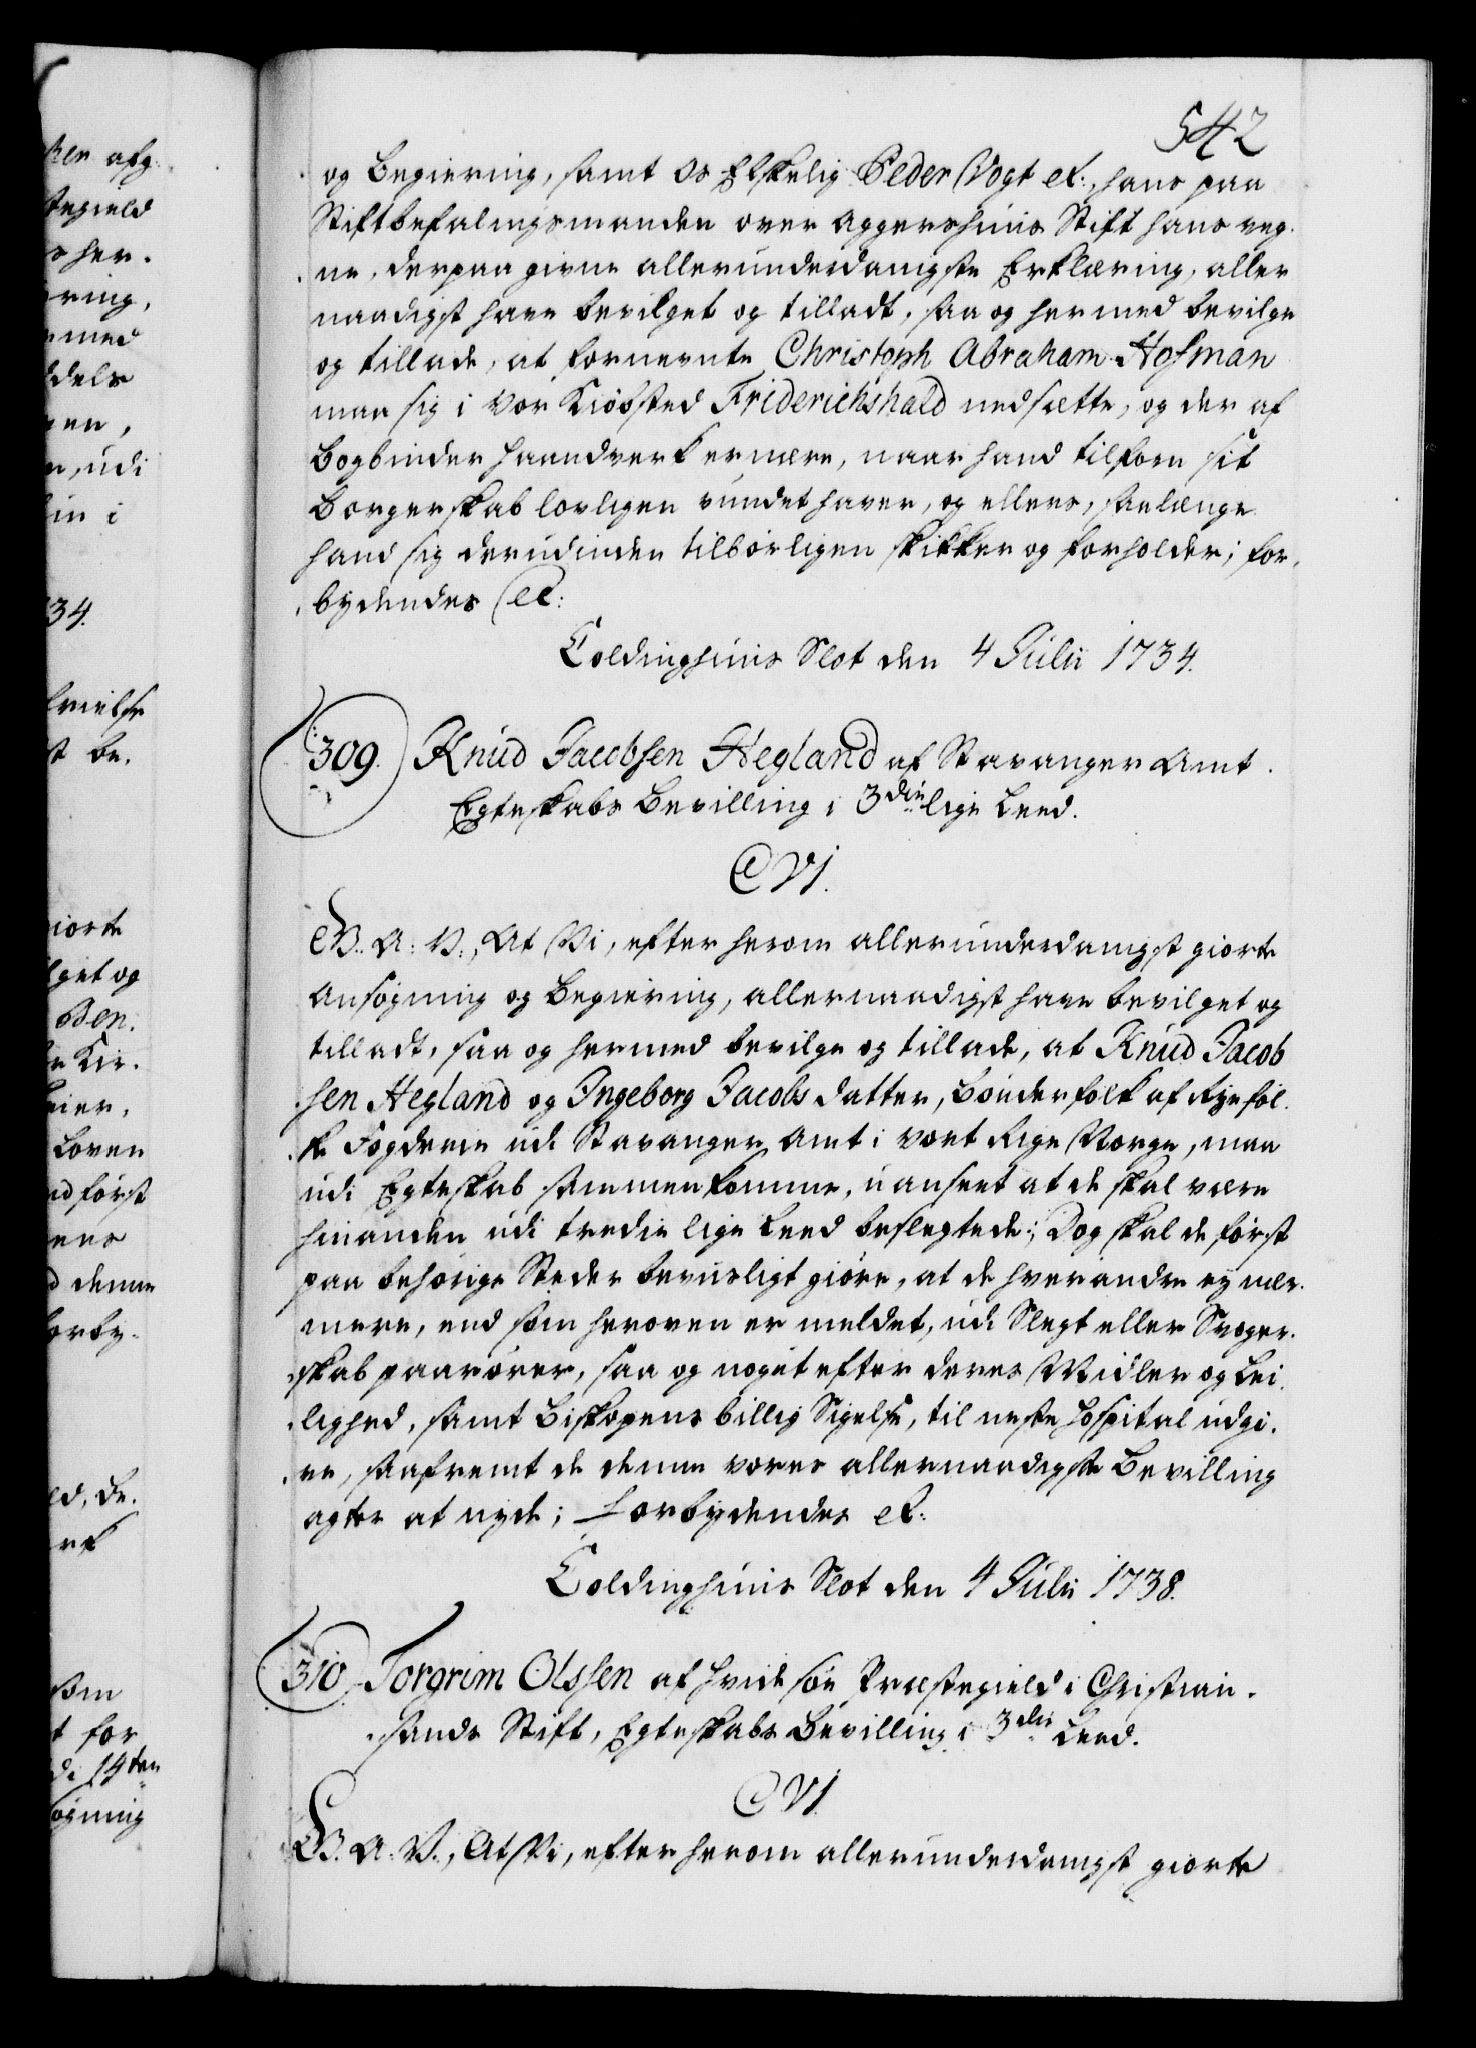 542
og begiering, samt Os Elskelig Peder Vogt etc:, hans paa
Stiftbefalingsmanden over Aggershuus Stift hans veg-
ne, derpaa givne allerunderdanigste Erklæring, aller
naadigst have bevilget og tilladt, saa og hermed bevilge
og tillade, at fornevnte Christoph Abraham Hofman
maa sig i Vor Kiöbsted Friderichshald nedsætte, og der af
Bogbinder Haandverk ernære, naar hand tilforn sit
Borgerskab lovligen vundet haver, og ellers, saalænge
hand sig derudinden tilbörligen skikker og forholder; for-
bydendes etc:
Coldinghuus Slot den 4 Julii 1734.
309. Knud Jacobsen Hegland af Stavanger Amt.
Egteskabs Bevilling i 3die lige Leed.
C VI.
G. A: V:, At Vi, efter herom allerunderdanigst giorte
Ansögning og begiering, allernaadigst have bevilget og
tilladt, saa og hermed bevilge og tillade, at Knud Jacob
sen Hegland og Ingeborg Jacobs datter, Bönderfolk af Ryefôl-
ke Fogderie udi Stavanger Amt i vort Rige Norge, maa
udi Egteskab sammenkomme, uanseet at de skal være
hinanden udi tredie lige Leed beslegtede; Dog skal de först
paa behörige Steder beviisligt giöre, at de hverandre ey nær-
mere, end som heroven er meldet, udi Slegt eller Svoger-
skab paarörer, saa og noget efter deres Midler og Lei-
lighed, samt Biskopens billig Sigelse, til neste Hospital udgi-
ve, saafremt de denne vores allernaadigste Bevilling
agter at nyde; Forbydendes etc:
Coldinghuus Slot den 4 Julii 1738.
310. Torgrim Olssen af Hvidesöe Præstegield i Christian-
sands Stift, Egteskabs Bevilling i 3die Leed.
C VI
G. A. V., At Vi, efter herom allerunderdanigst giorte